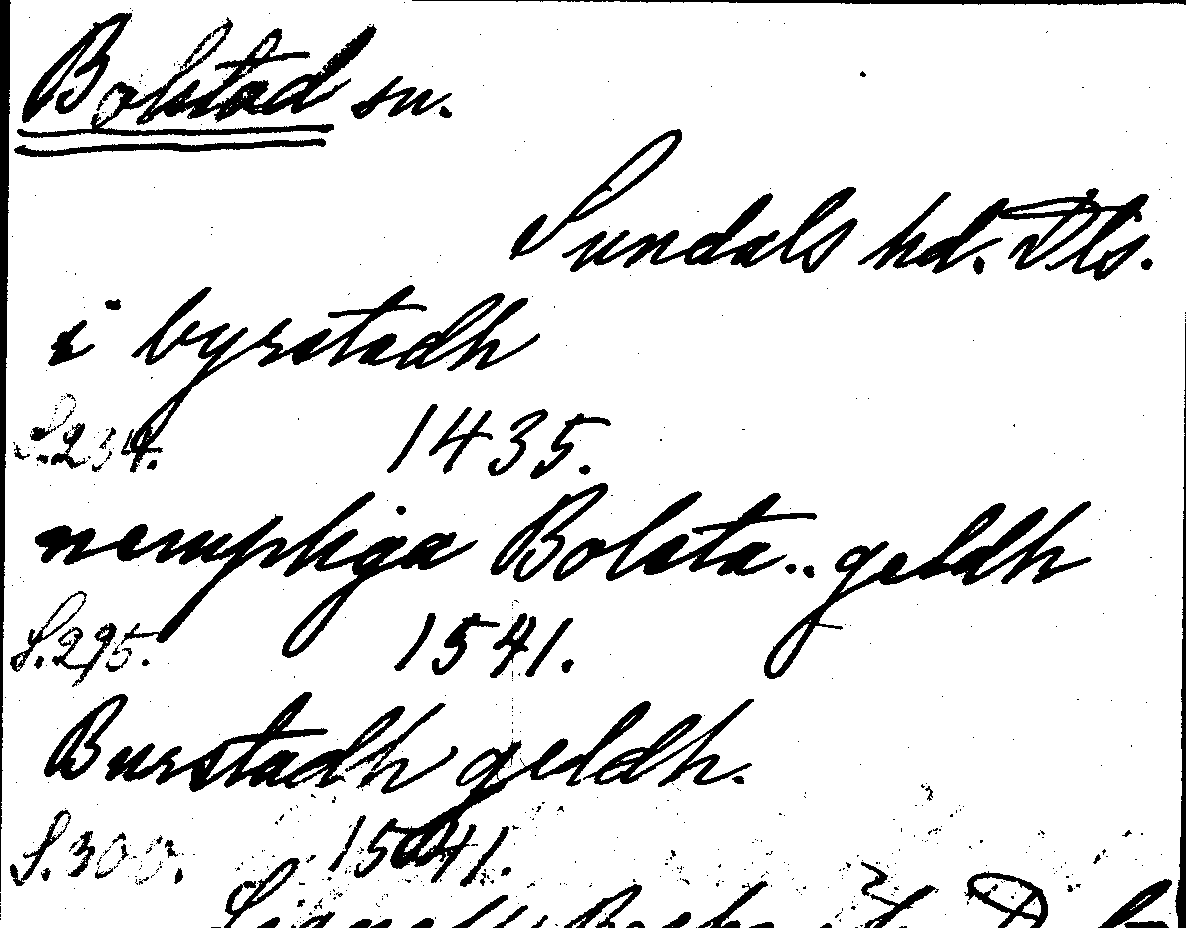 Bolstad sn.
Sundals hd. Dls.
i byrstadh
S. 234. 1435.
nempliga Bolsta.. geldh
S. 295. 1541.
Burstadh geldh.
S. 300. 1541.